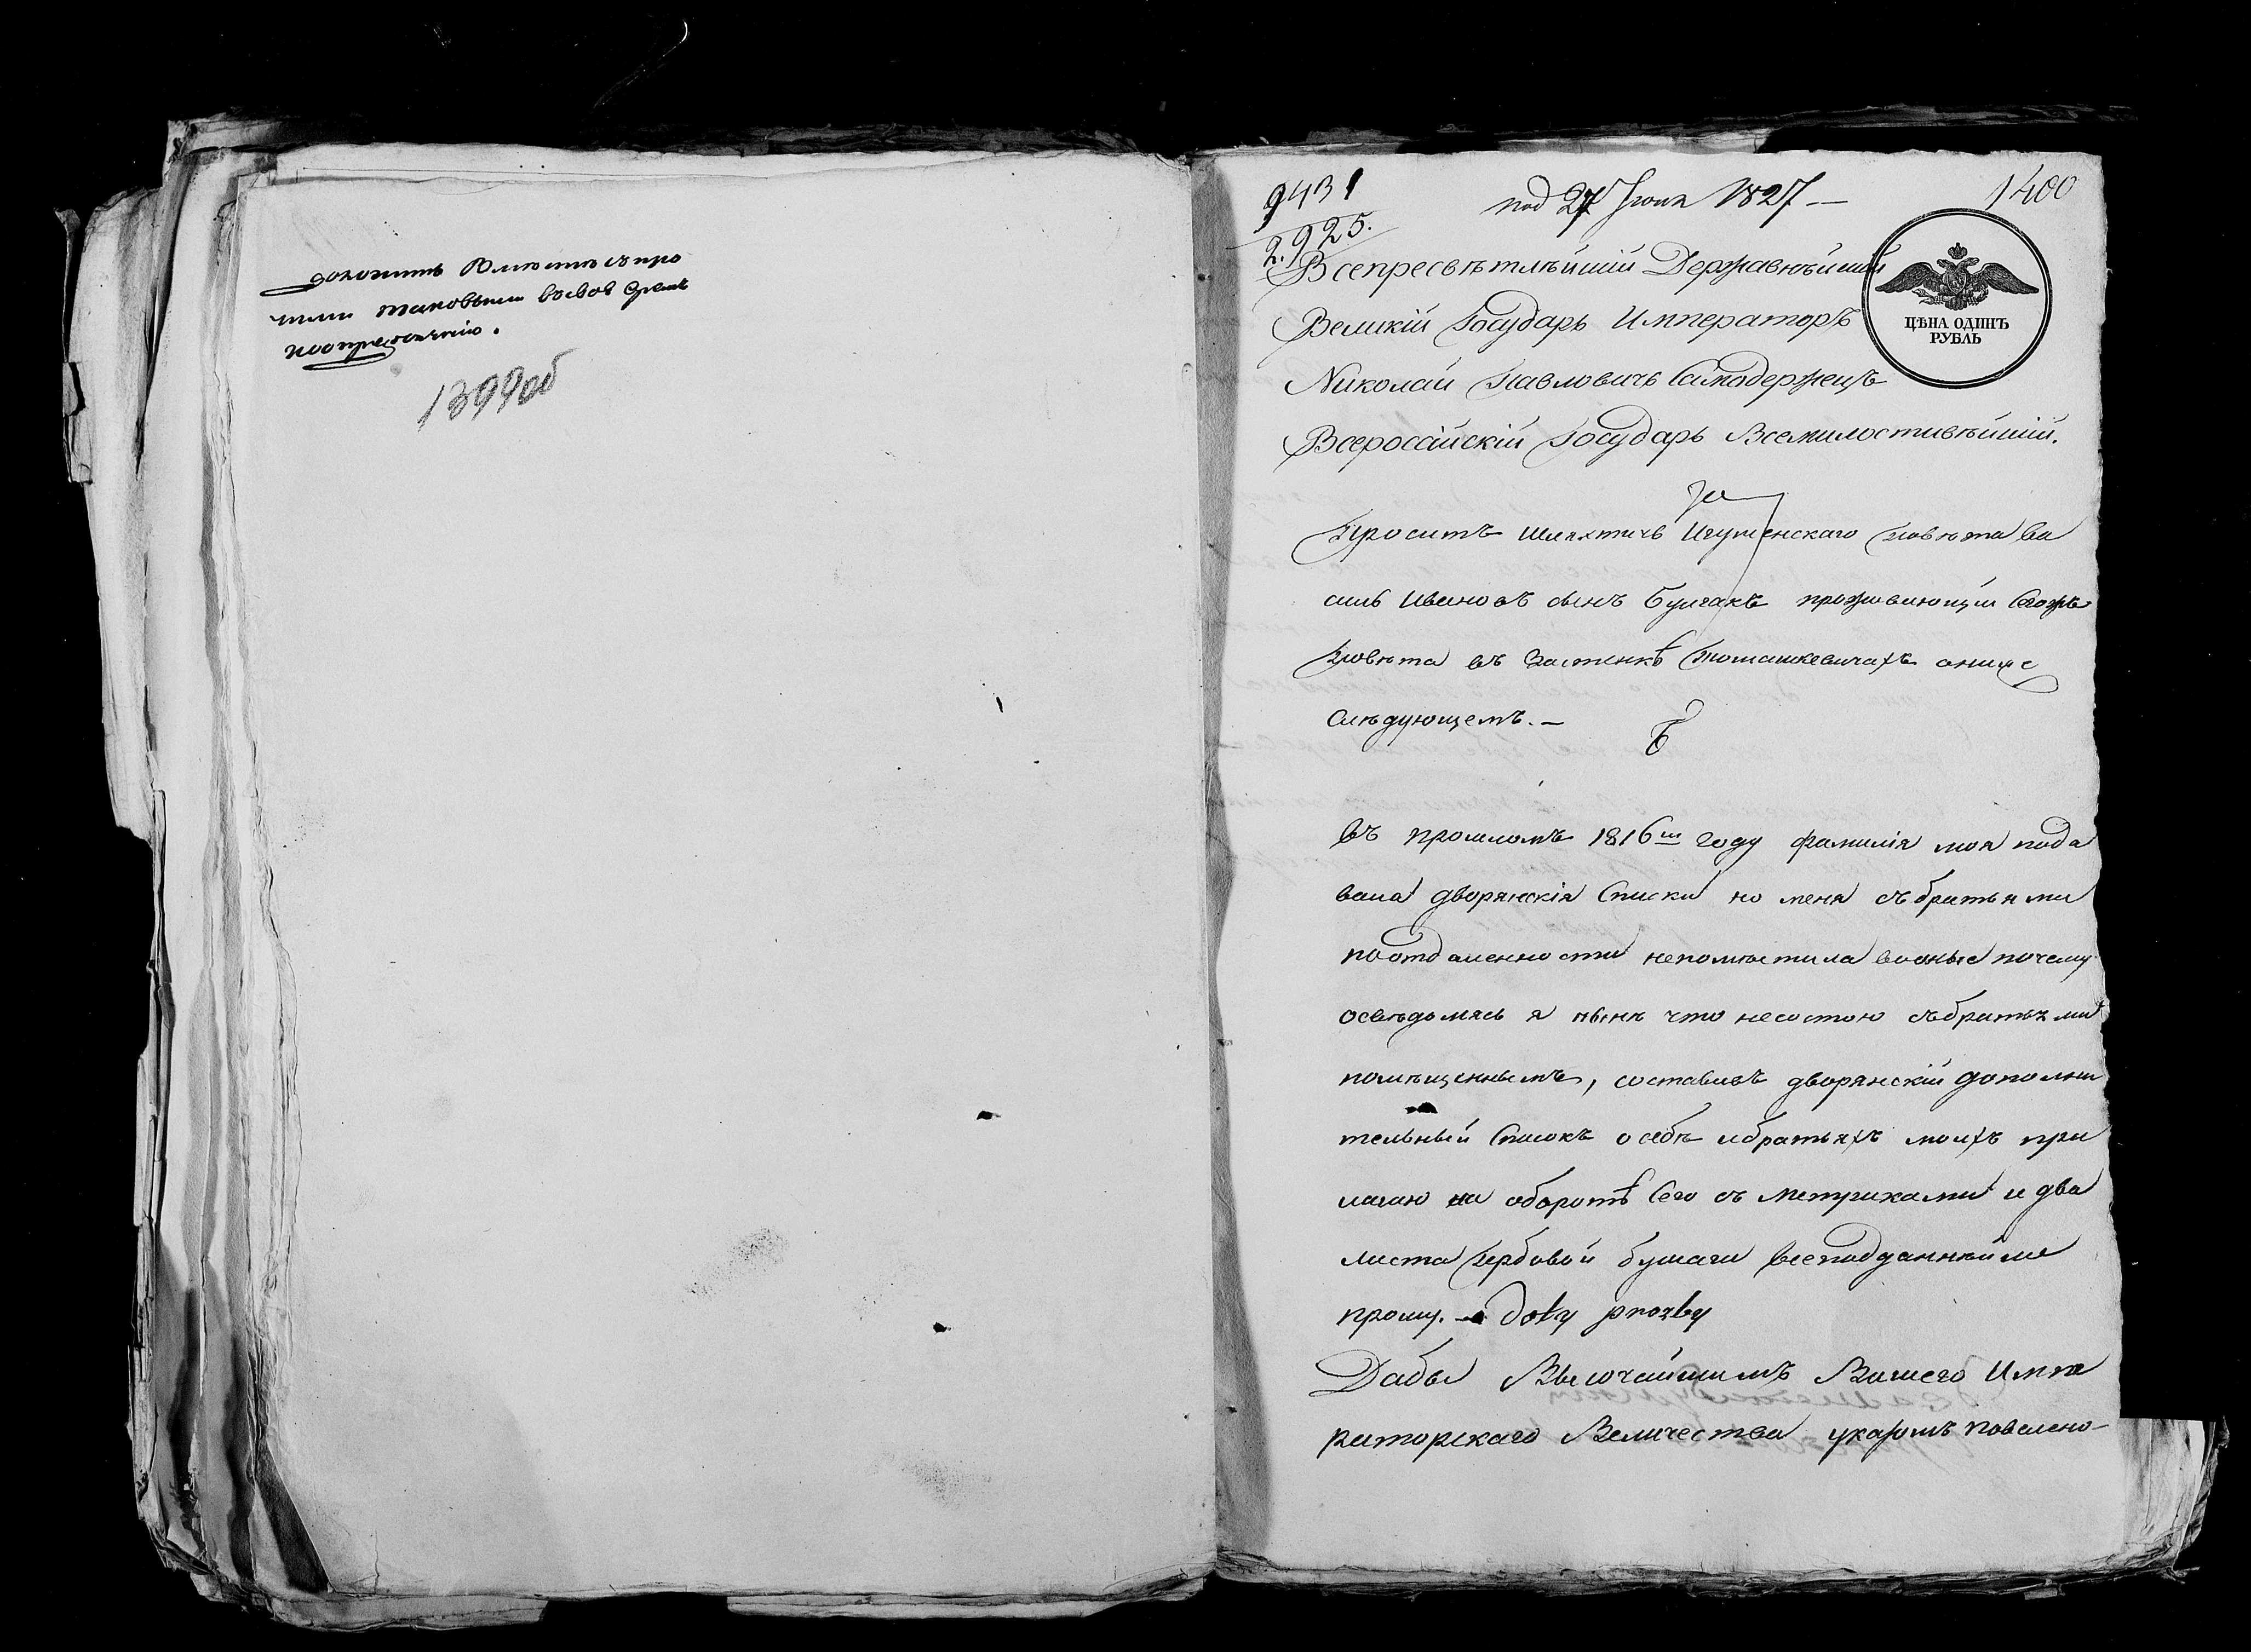 доложить вместе съ про
чими таковыми во свое время
1399 об
9431
2,925.
под 27 Іюня 1827 —
1400
ЦѢНА ОДИНЪ
РУБЛЬ
Всепресвѣтлѣйшій Державнѣйшій
Великій Государь Императоръ
Николай Павловичь Самодержецъ
Всероссійскій Государь Всемилостивѣйшій.
Проситъ шляхтичь Игуменскаго повѣта Ва
силь Ивановъ сынъ Булгакъ проживающій сегожъ
повѣта въ застенкѣ Томашкевичахъ а о чемъ
слѣдующемъ. —
въ прошломъ 1816м году фамилія моя пода
вала дворянскія списки но меня съ братьями
по отдаленности непомѣстила во оные почему
освѣдомясь я нынѣ что несостою съ братьями
помѣщеннымъ, составивъ дворянскій дополни
тельный списокъ о себѣ и братьяхъ моихъ при
лагаю на оборотѣ сего съ метриками и два
листа гербовой бумаги всеподданнѣйше
прошу. — do ty prozby
Дабы Высочайшимъ Вашего Импе
раторскаго Величества указомъ повелено